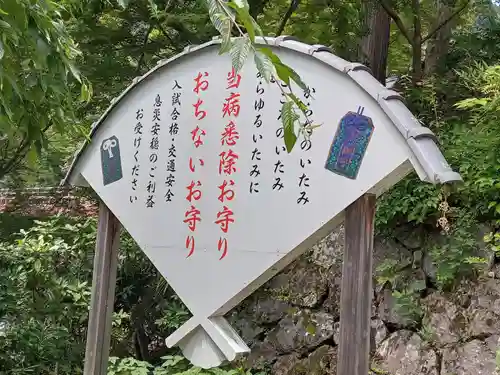 からだのいたみ
のいたみ
あらゆるいたみに
当病悉除お守り
おちないお守り
入試合格・交通安全
息災安穏のご利益
お受けください